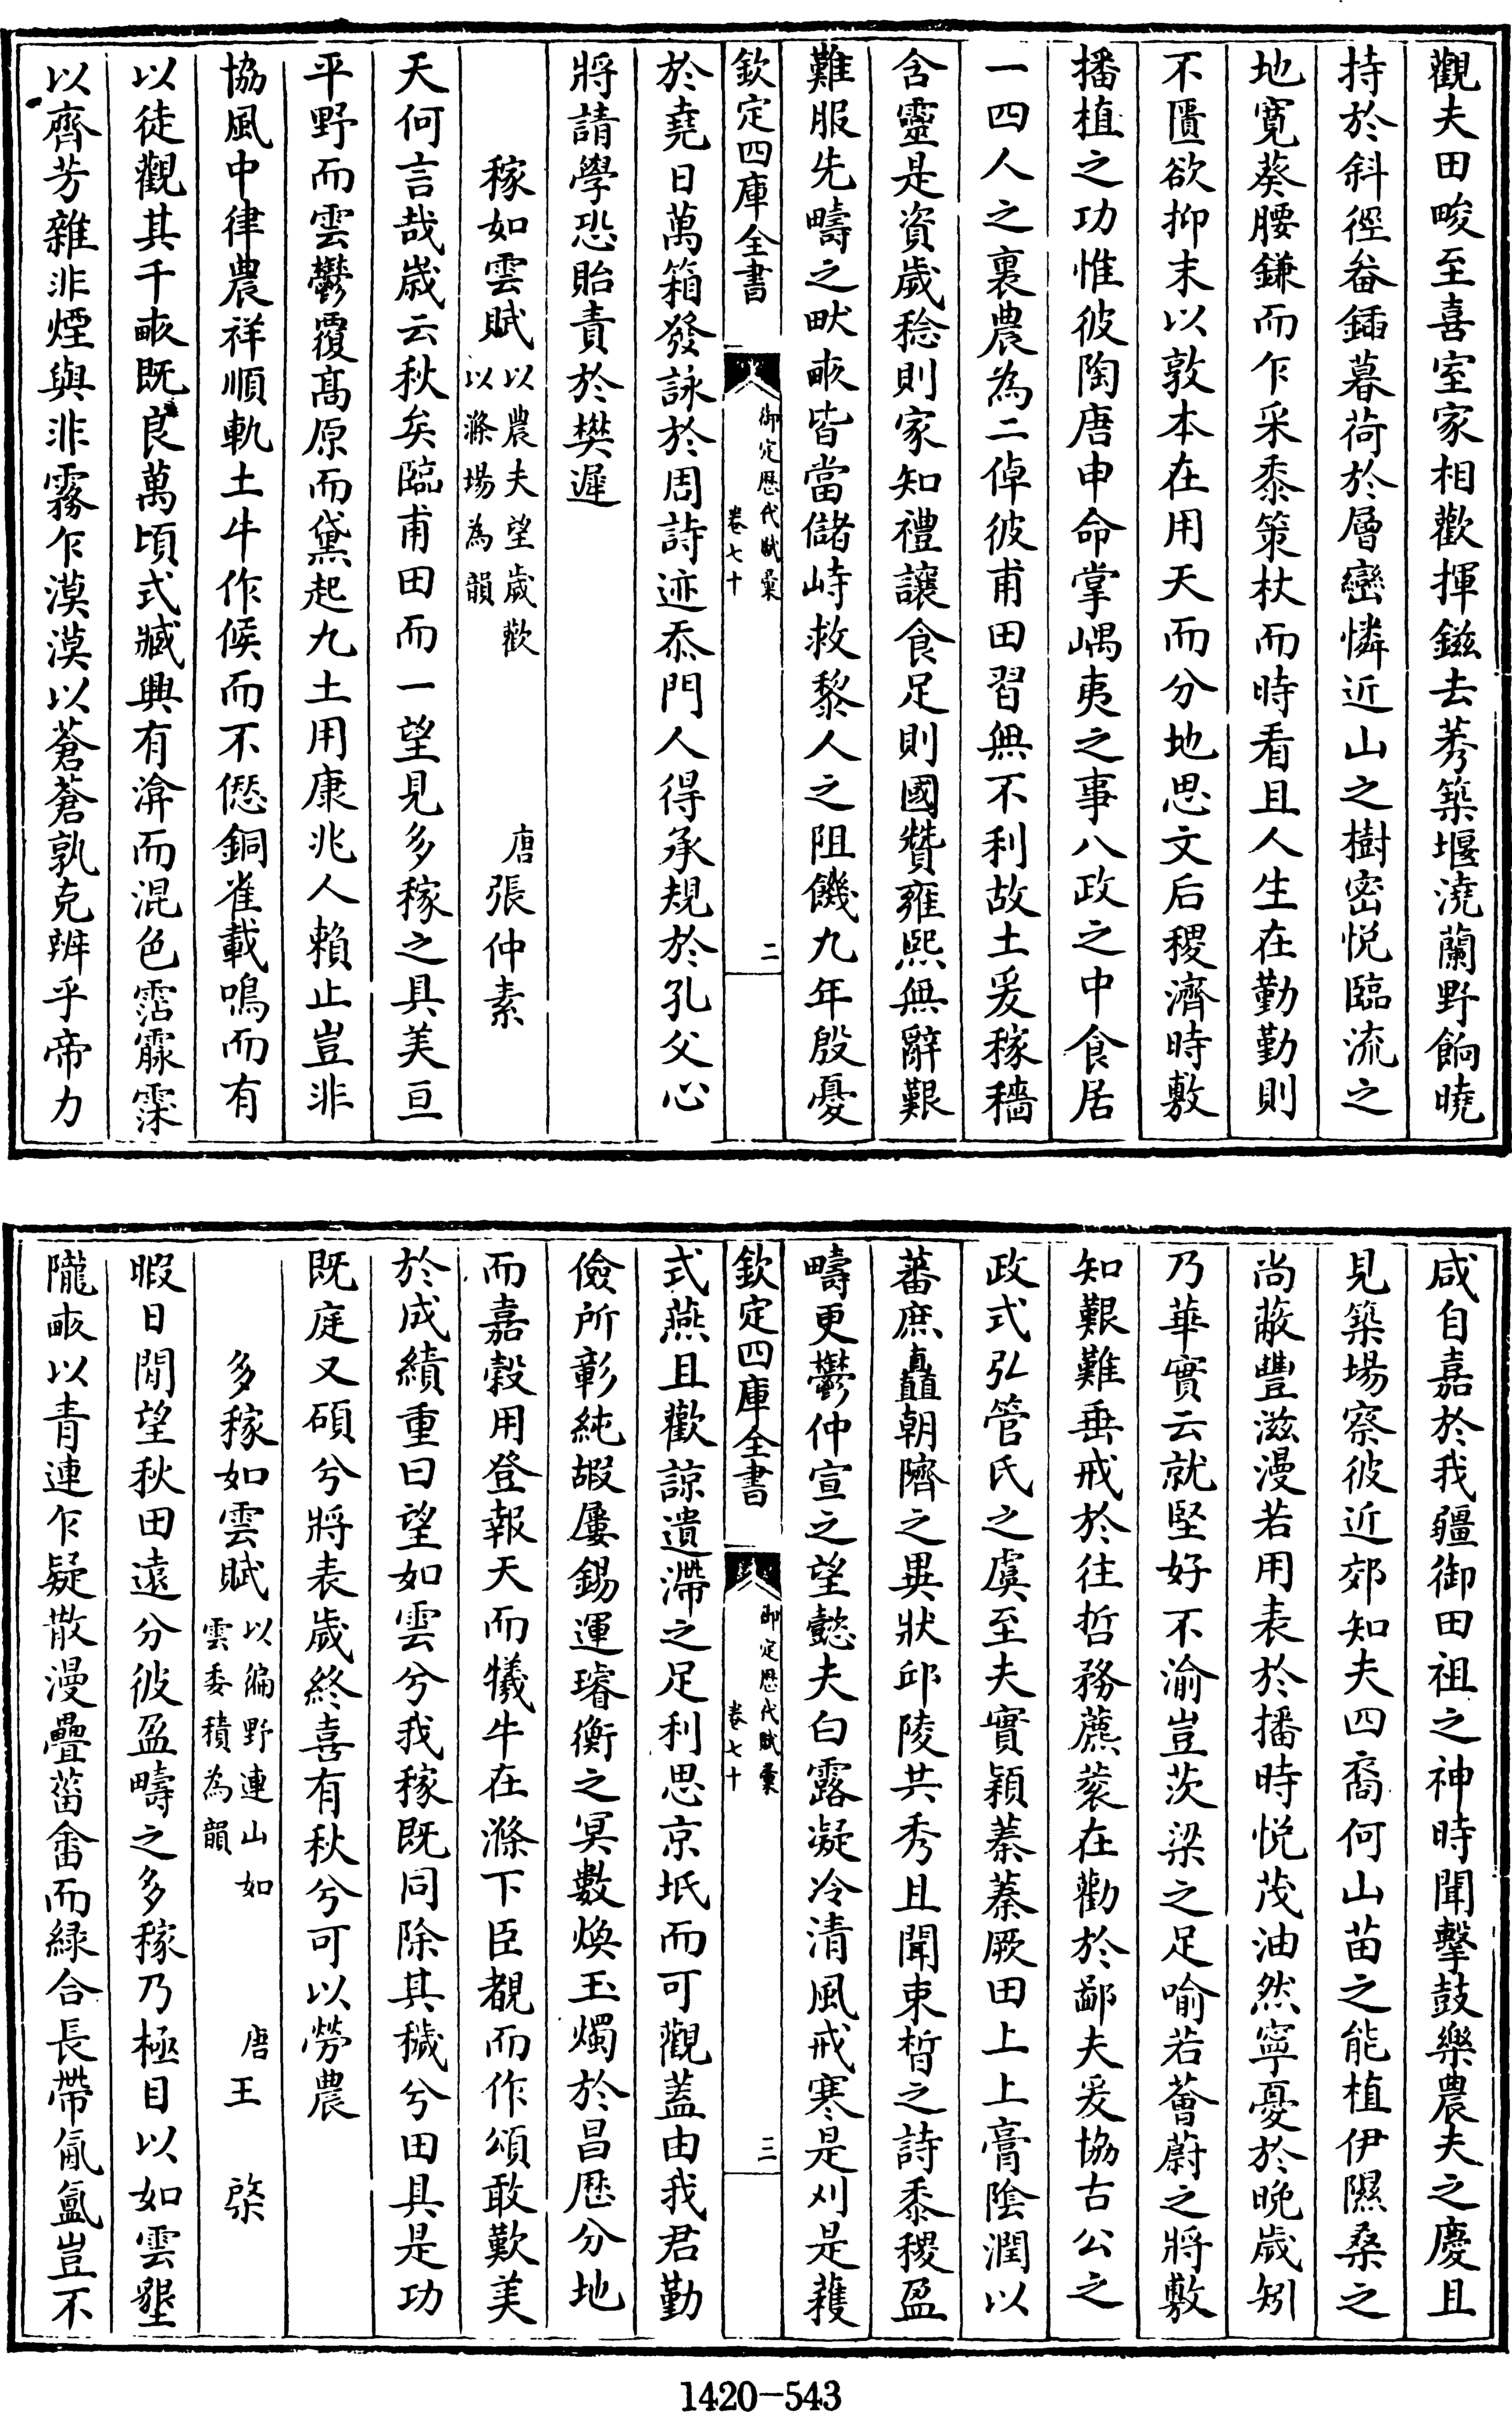 觀夫田畯至喜室家相歡揮鎡去莠築堰澆蘭野餉曉
持於斜徑畚鍤暮荷於層巒憐近山之樹密悦臨流之
地寛葵腰鎌而乍采黍策杖而時看且人生在勤勤則
不匱欲抑末以敦本在用天而分地思文后稷濟時敷
播植之功惟彼陶唐申命掌嵎夷之事八政之中食居
一四人之裏農為二倬彼甫田習無不利故土爰稼穡
含靈是資歲稔則家知禮讓食足則國贊雍熙無辭艱
難服先疇之畎畝皆當儲峙救黎人之阻饑九年殷憂
欽定四庫全書
御定歴代賦彙
卷七十
二
於堯日萬箱發詠於周詩迹忝門人得承規於孔父心
將請學恐貽責於樊遲
稼如雲賦
以農夫望歲歡
以滌場為韻
唐張仲素
天何言哉歲云秋矣臨甫田而一望見多稼之具美亘
平野而雲鬱覆髙原而黛起九土用康兆人賴止豈非
協風中律農祥順軌土牛作候而不愆銅雀載鳴而有
以徒觀其千畝既良萬頃式臧興有渰而混色霑霢霂
以齊芳雜非煙與非霧乍漠漠以蒼蒼孰克辨乎帝力
咸自嘉於我疆御田祖之神時聞擊鼓樂農夫之慶且
見築場察彼近郊知夫四裔何山苗之能植伊隰桑之
尚蔽豐滋漫若用表於播時悦茂油然寧憂於晚歲矧
乃華實云就堅好不渝豈茨梁之足喻若薈蔚之將敷
知艱難垂戒於往哲務藨蓘在勸於鄙夫爰協古公之
政式弘管氏之虞至夫實穎蓁蓁厥田上上膏隂潤以
蕃庶矗朝隮之異狀邱陵共秀且聞束晳之詩黍稷盈
疇更鬱仲宣之望懿夫白露凝冷清風戒寒是刈是穫
欽定四庫全書
御定歴代賦彙
卷七十
三
式燕且歡諒遺滯之足利思京坻而可觀蓋由我君勤
儉所彰純嘏屢錫運璿衡之冥數煥玉燭於昌歴分地
而嘉穀用登報天而犧牛在滌下臣覩而作頌敢歎美
於成績重曰望如雲兮我稼既同除其穢兮田具是功
既庭又碩兮將表歲終喜有秋兮可以勞農
多稼如雲賦
以徧野連山如
雲委積為韻
唐王棨
暇日閒望秋田逺分彼盈疇之多稼乃極目以如雲壟
隴畝以青連乍疑散漫疊菑畬而緑合長帶氤氳豈不
1420-543